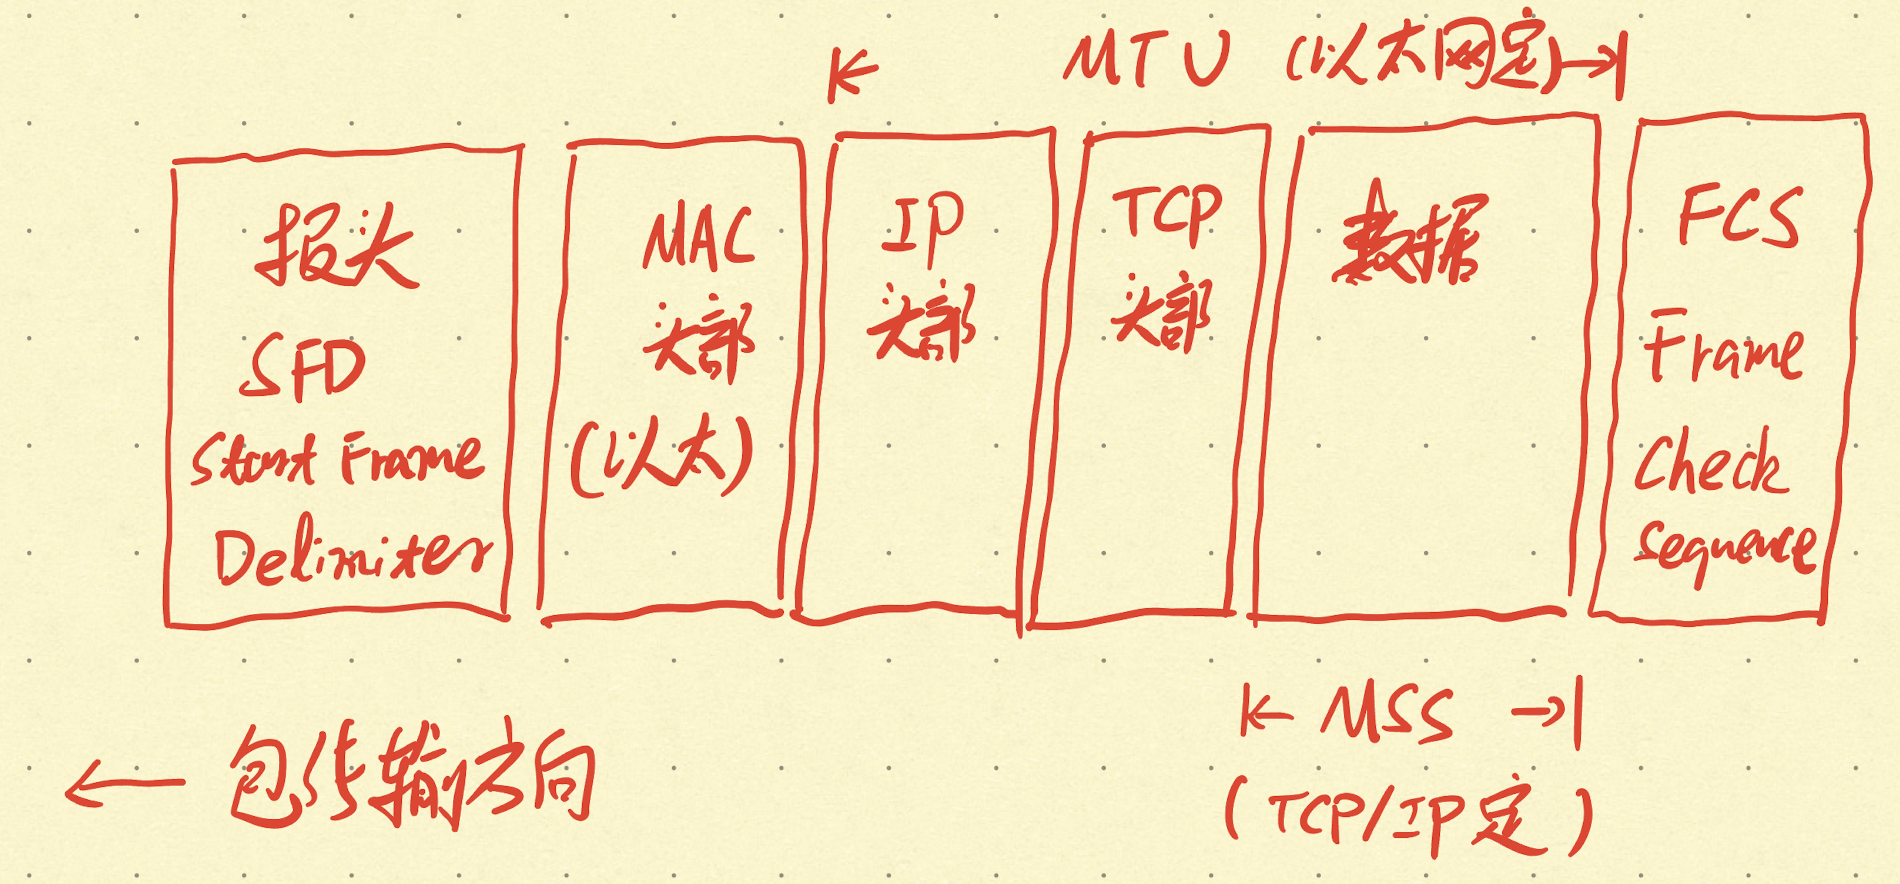 MTU (以太网定)
报头
SFD
Start Frame
Delimiter
MAC
头部
(以太)
IP
头部
TCP
头部
数据
FCS
Frame
Check
Sequence
MSS
(TCP/IP定)
← 包传输方向